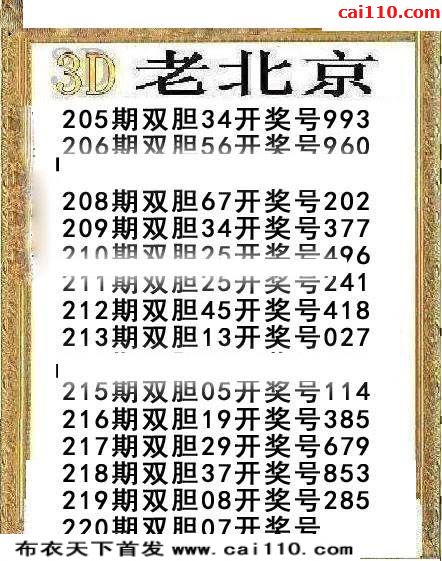 cai110.com
3D 老北京
205期双胆34开奖号993
206期双胆56开奖号960
208期双胆67开奖号202
209期双胆34开奖号377
210期双胆25开奖号496
211期双胆25开奖号241
212期双胆45开奖号418
213期双胆13开奖号027
215期双胆05开奖号114
216期双胆19开奖号385
217期双胆29开奖号679
218期双胆37开奖号853
219期双胆08开奖号285
220期双胆07开奖号
布衣天下首发 www.cai110.com